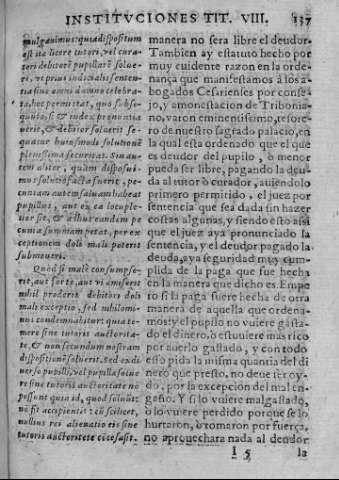 INSTITVCIONES TIT. VIII. 137
mulgauimus: quia dispositum
est ita licere tutori, vel cura-
tori debitorẽ pupillarẽ solue-
re, vt prius iudicialis senten-
tia sine omni damno celebra-
ta, hoc permittat, quo subse-
quuto, si & index pronuntia
uerit, & debitor soluerit se-
quatur huiusmodi solutionẽ
plenissima securitas. Sin au-
tem aliter, quàm disposui-
mus solutio facta fuerit, pe-
cuniam autem saluam habeat
pupillus, aut ex ea locuple-
tior sit, & adhuc eandem pe
cuniæ summam petat, per ex
ceptionem doli mali poterit
submoueri.
Quòd si malè consumpse-
rit, aut furto, aut vi amiserit
nihil proderit debitori doli
mali exceptio, sed nihilomi-
nus condemnabitur: quia te-
merè sine tutoris auctorita-
te, & non secundum nostram
dispositionẽ soluerit. sed ex di
uerso pupilli, vel pupillæ solue
re sine tutoris auctoritate nõ
possunt quia id, quod soluũt:
nõ fit accipientis: cũ scilicet,
nullius rei alienatio eis sine
tutoris auctoritate cõcessa sit.
manera no sera libre el deudor.
Tambien ay estatuto hecho por
muy euidente razon en la orde-
nança que manifestamos à los a-
bogados Cesarienses por conse-
jo, y amonestacion de Tribonia-
no, varon eminentissimo, tesore-
ro de nuestro sagrado palacio, en
la qual esta ordenado que el que
es deudor del pupilo, ò menor
pueda ser libre, pagando la deu-
da al tutor ò curador, auiendolo
primero permitido, el juez por
sentencia que sea dada sin hazer
costas algunas, y siendo esto assi
que el juez aya pronunciado la
sentencia, y el deudor pagado la
deuda, aya seguridad muy cum-
plida de la paga que fue hecha
en la manera que dicho es. Empe
ro si la paga fuere hecha de otra
manera de aquella que ordena-
mos: y el pupilo no vuiere gasta-
do el dinero, ò estuuiere mas rico
por auerlo gastado, y con todo
esso pida la misma quantia del di
nero que presto, no deue ser oy-
do, por la excepcion del mal en-
gaño. Y si lo vuiere malgastado,
ò lo vuiere perdido porque se lo
hurtaron, ò tomaron por fuerça,
no aprouechara nada al deudor
I 5 la